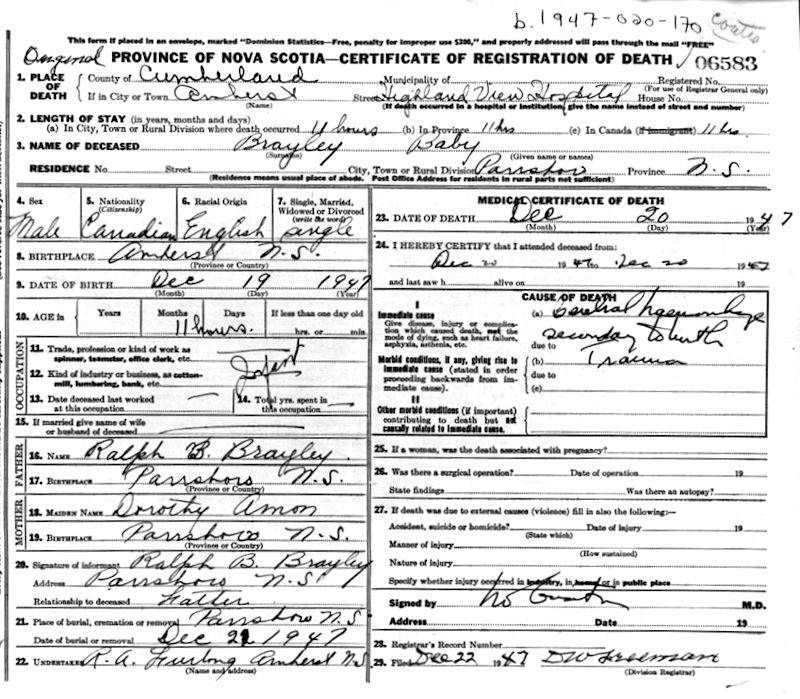 b. 1947-020-170
Coates
This form if placed in an envelope, marked "Dominion Statistics—Free, penalty for improper use $300," and properly addressed will pass through the mail "FREE"
Original PROVINCE OF NOVA SCOTIA—CERTIFICATE OF REGISTRATION OF DEATH 06583
1. PLACE OF DEATH County of Cumberland Municipality of Registered No.
(For use of Registrar General only)
If in City or Town Amherst Street Highland View Hospital House No.
(Name) (If death occurred in a hospital or institution, give the name instead of street and number)
2. LENGTH OF STAY (in years, months and days)
(a) In City, Town or Rural Division where death occurred 11 hours (b) In Province 11 hrs (c) In Canada (if immigrant) 11 hrs.
3. NAME OF DECEASED Brayley Baby
(Surname) (Given name or names)
RESIDENCE No. Street City, Town or Rural Division Parrsboro Province N.S.
(Residence means usual place of abode. Post Office Address for residents in rural parts not sufficient)
4. Sex 5. Nationality (Citizenship) 6. Racial Origin 7. Single, Married, Widowed or Divorced (write the word)
Male Canadian English single
8. BIRTHPLACE Amherst N.S.
(Province or Country)
9. DATE OF BIRTH Dec 19 1947
(Month) (Day) (Year)
10. AGE in Years Months Days If less than one day old
11 hours. hrs. or min.
OCCUPATION
11. Trade, profession or kind of work as spinner, teamster, office clerk, etc.
12. Kind of industry or business, as cotton-mill, lumbering, bank, etc. Infant
13. Date deceased last worked at this occupation — 14. Total yrs. spent in this occupation —
15. If married give name of wife or husband of deceased
FATHER
16. NAME Ralph B. Brayley
17. BIRTHPLACE Parrsboro N.S.
(Province or Country)
MOTHER
18. MAIDEN NAME Dorothy Amon
19. BIRTHPLACE Parrsboro N.S.
(Province or Country)
20. Signature of informant Ralph B. Brayley
Address Parrsboro N.S
Relationship to deceased Father
21. Place of burial, cremation or removal Parrsboro N.S
Date of burial or removal Dec 21 1947
22. UNDERTAKER R.A. Furlong Amherst N.S
(Name and address)
MEDICAL CERTIFICATE OF DEATH
23. DATE OF DEATH Dec 20 1947
(Month) (Day) (Year)
24. I HEREBY CERTIFY that I attended deceased from:
Dec 20 1947 to Dec 20 1947
and last saw h alive on 19
CAUSE OF DEATH
I
Immediate cause (a) Cerebral haemorrhage
Give disease, injury or complication which caused death, not the mode of dying, such as heart failure, asphyxia, asthenia, etc.
secondary to birth
due to
Morbid conditions, if any, giving rise to immediate cause (stated in order proceeding backwards from immediate cause).
(b) Trauma
due to
(c)
II
Other morbid conditions (if important) contributing to death but not causally related to immediate cause.
25. If a woman, was the death associated with pregnancy?
26. Was there a surgical operation? Date of operation 19
State findings Was there an autopsy?
27. If death was due to external causes (violence) fill in also the following:—
Accident, suicide or homicide? Date of injury 19
(State which)
Manner of injury
(How sustained)
Nature of injury
Specify whether injury occurred in industry, in home or in public place
Signed by M.D.
Address Date 19
28. Registrar's Record Number
29. Filed Dec 22 1947 DW Freeman
(Division Registrar)